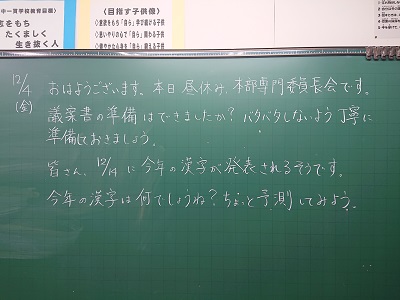 中一貫学校教育目標》
志をもち
たくましく
生き抜く人
《目指す子供像》
◇意欲をもち「自ら」学び続ける子供
◇思いやりの心で「自ら」関わる子供
12/4
(金)
おはようございます。本日 昼休み、本部専門委員長会です。
議案書の準備はできましたか？バタバタしないよう丁寧に
準備しておきましょう。
皆さん、12/14 に今年の漢字が発表されるそうです。
今年の漢字は何でしょうね？ちょっと予測してみよう。